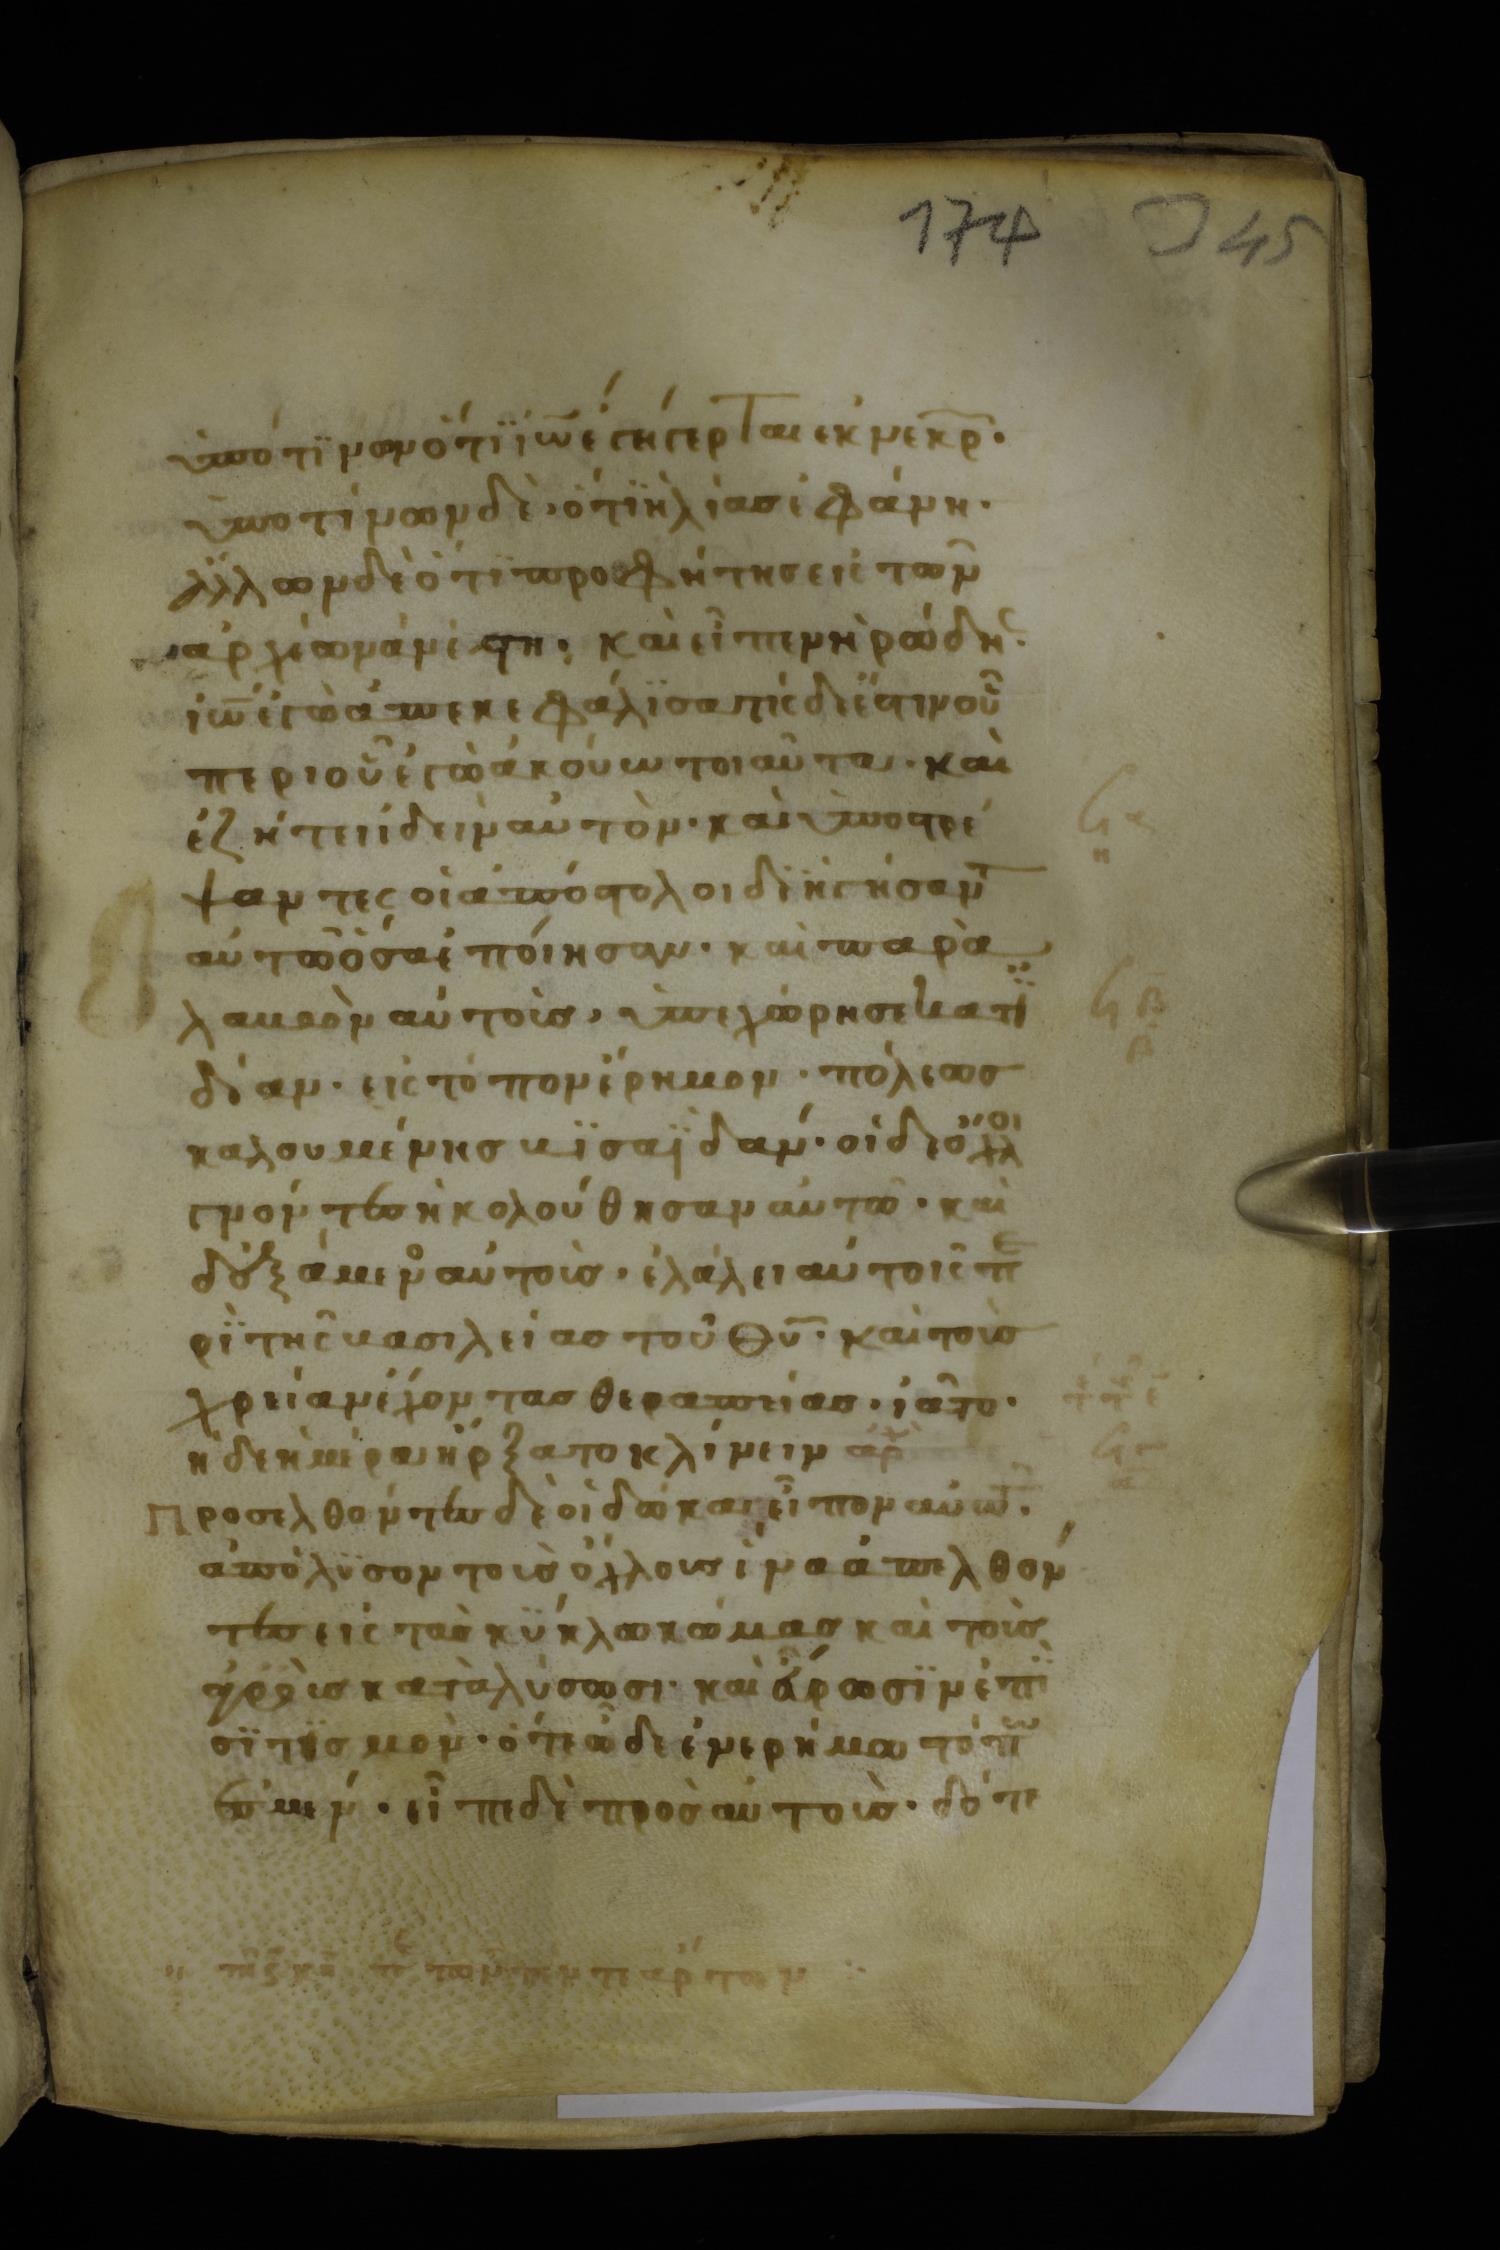 174 45
ὑπό τϊνων ὅτι ϊω̅ ἐγήγερται ἐκ νεκρ̅·
ὑπό τινων δὲ· ὅτι ἠλίας ἐφάνη·
ἄλλων δὲ ὅτι προφήτης εἷς τῶν
ἀρχέων ἀνέστη· καὶ εἶπεν ἡρώδης·
ἰω̅ ἐγὼ ἀπεκεφάλϊσα τίς δὲ ἔστιν οὗ
περι οὗ ἐγὼ ἀκούω τοιαῦτα· καὶ
ἐζήτει ἰδεῖν αὐτὸν· καὶ ὑποστρέ
ψαντες οἱ ἀπόστολοι διηγήσαντ
αὐτῶ ὅσα ἐποίησαν· καὶ παρα
λαβὼν αὐτοὺς, ὑπεχώρησε κατ ϊ
δίαν· εἰς τόπον ἔρημον· πόλεως
καλουμένης βϊσαϊδάν· οἱ δὲ ὄχλοι
γνόντες ἠκολούθησαν αὐτῶ· καὶ
δεξάμενο αὐτοὺς· ἐλάλει αὐτοῖς πε
ρϊ τῆς βασιλείας τοῦ θυ̅· καὶ τοὺς
χρείαν ἔχοντας θεραπείας· ἰᾶτο·
ἡ δὲ ἡμέρα ἤρξατο κλίνειν ἀρ̅χ
Προσελθόντες δὲ οἱ δώκα εἶπον αὐτῶ·
ἀπόλυσον τοὺς ὄχλους ἵνα ἀπελθόν
τες εἰς τὰς κύκλω κώμας καὶ τοὺς
ἀγροὺς καταλύσωσι· καὶ εὕρωσϊν ἐπϊ
σϊτϊσμὸν· ὅτι ὧδε ἐν ἐρήμω τόπω
ἐσμέν· εἶπε δὲ πρὸς αὐτοὺς· δότε